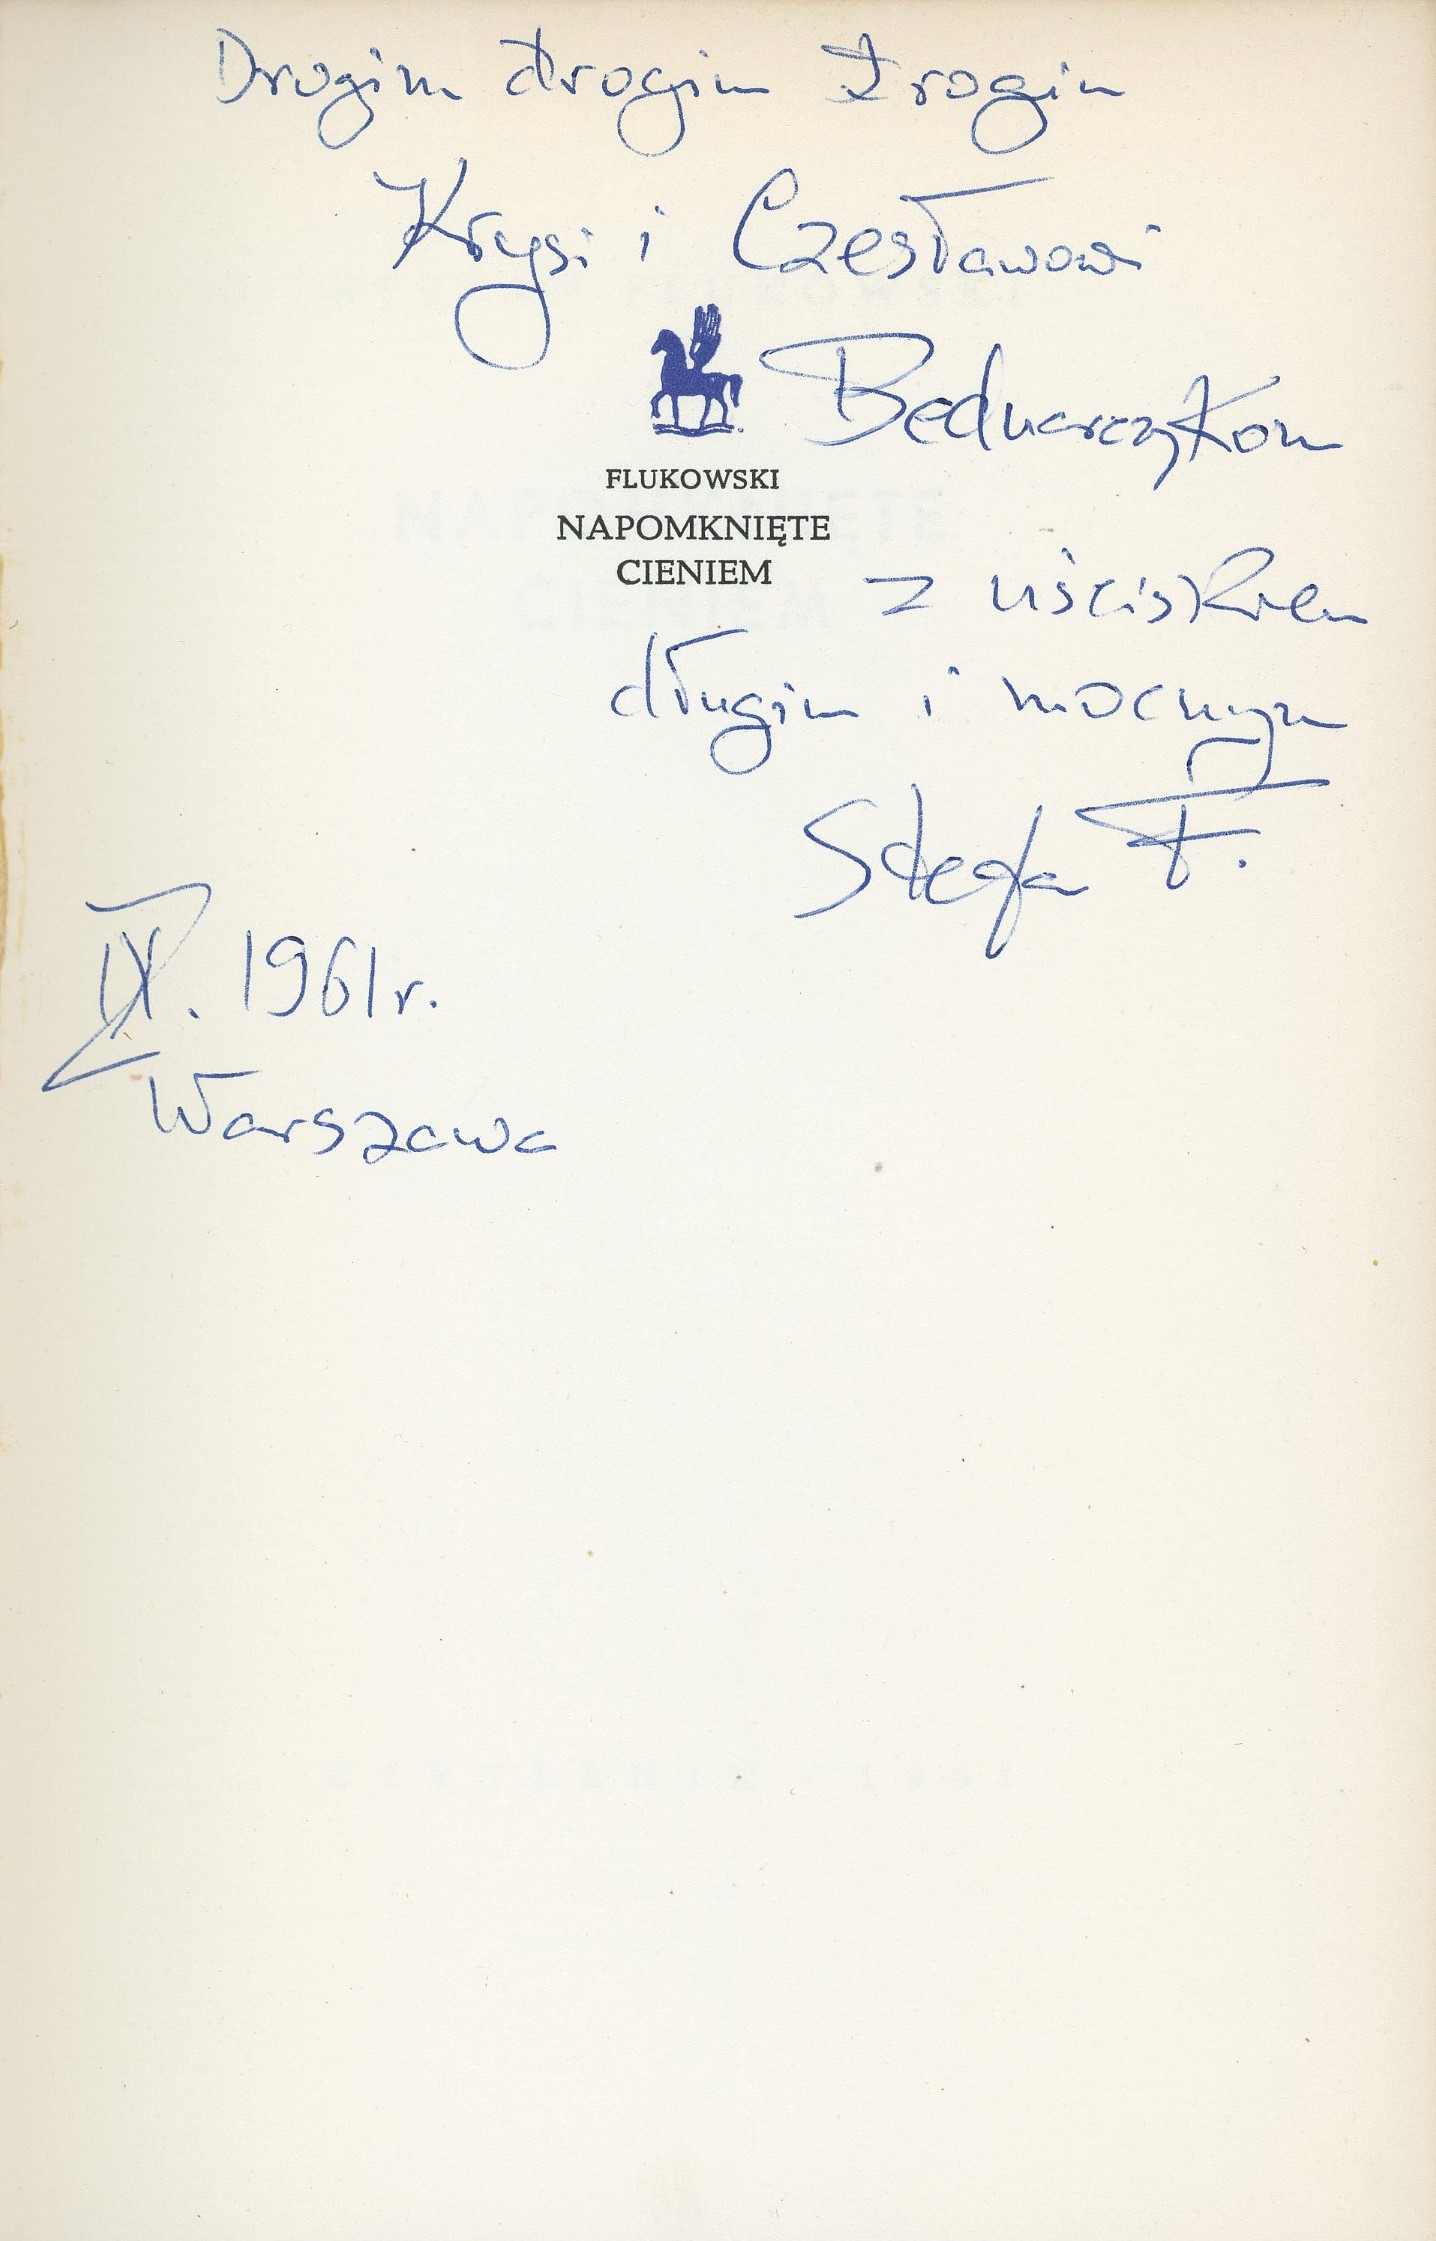 Drogim drogim drogim
Krysi i Czesławowi
Bednarczykom
FLUKOWSKI
NAPOMKNIĘTE
CIENIEM
z uściskiem
długim i mocnym
Stefan F.
IX. 1961 r.
Warszawa